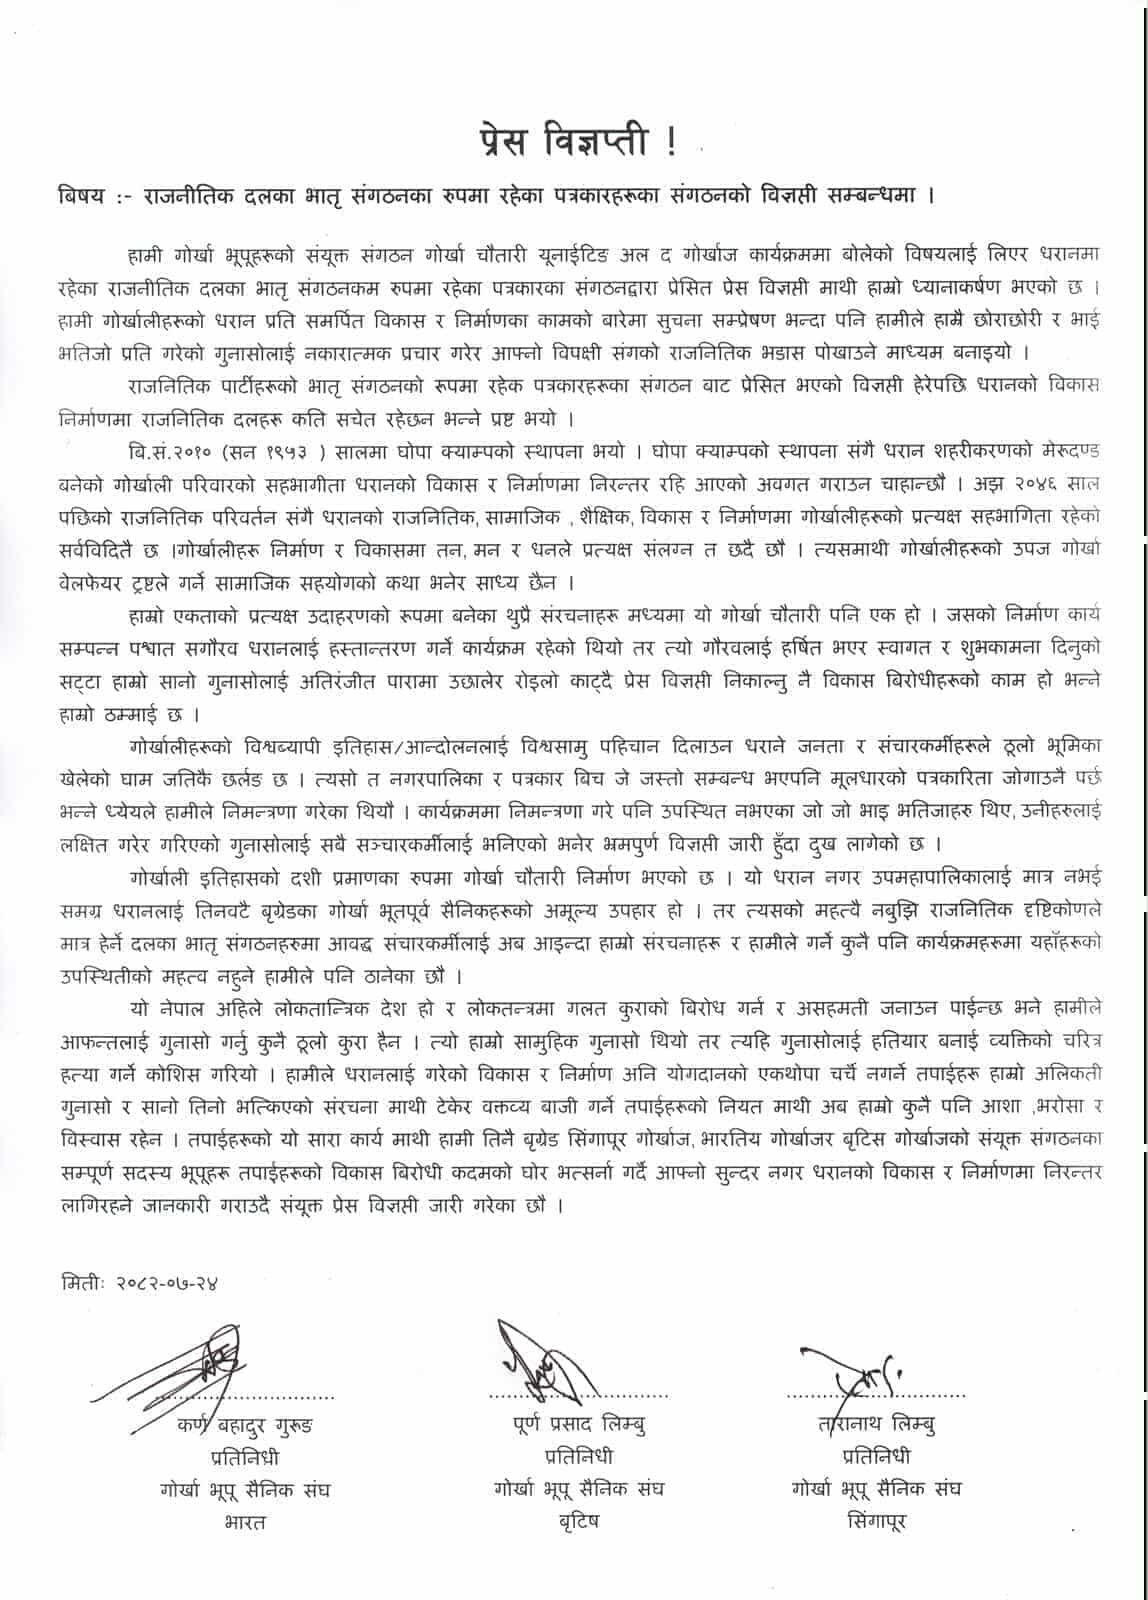 प्रेस विज्ञप्ती !
बिषय :- राजनीतिक दलका भातृ संगठनका रुपमा रहेका पत्रकारहरूका संगठनको विज्ञप्ती सम्बन्धमा ।
हामी गोर्खा भूपूहरूको संयूक्त संगठन गोर्खा चौतारी यूनाईटिङ अल द गोर्खाज कार्यक्रममा बोलेको विषयलाई लिएर धरानमा
रहेका राजनीतिक दलका भातृ संगठनकम रुपमा रहेका पत्रकारका संगठनद्वारा प्रेसित प्रेस विज्ञप्ती माथी हाम्रो ध्यानाकर्षण भएको छ ।
हामी गोर्खालीहरूको धरान प्रति समर्पित विकास र निर्माणका कामको बारेमा सुचना सम्प्रेषण भन्दा पनि हामीले हाम्रै छोराछोरी र भाई
भतिजो प्रति गरेको गुनासोलाई नकारात्मक प्रचार गरेर आफ्नो विपक्षी संगको राजनितिक भडास पोखाउने माध्यम बनाइयो ।
राजनितिक पार्टीहरूको भातृ संगठनको रूपमा रहेक पत्रकारहरूका संगठन बाट प्रेसित भएको विज्ञप्ती हेरेपछि धरानको विकास
निर्माणमा राजनितिक दलहरू कति सचेत रहेछन भन्ने प्रष्ट भयो ।
बि.सं.२०१० (सन १९५३ ) सालमा घोपा क्याम्पको स्थापना भयो । घोपा क्याम्पको स्थापना संगै धरान शहरीकरणको मेरूदण्ड
बनेको गोर्खाली परिवारको सहभागीता धरानको विकास र निर्माणमा निरन्तर रहि आएको अवगत गराउन चाहान्छौ । अझ २०४६ साल
पछिको राजनितिक परिवर्तन संगै धरानको राजनितिक, सामाजिक , शैक्षिक, विकास र निर्माणमा गोर्खालीहरूको प्रत्यक्ष सहभागिता रहेको
सर्वविदितै छ ।गोर्खालीहरू निर्माण र विकासमा तन, मन र धनले प्रत्यक्ष संलग्न त छदै छौ । त्यसमाथी गोर्खालीहरूको उपज गोर्खा
वेलफेयर ट्रष्टले गर्ने सामाजिक सहयोगको कथा भनेर साध्य छैन ।
हाम्रो एकताको प्रत्यक्ष उदाहरणको रूपमा बनेका थुप्रै संरचनाहरू मध्यमा यो गोर्खा चौतारी पनि एक हो । जसको निर्माण कार्य
सम्पन्न पश्चात सगौरव धरानलाई हस्तान्तरण गर्ने कार्यक्रम रहेको थियो तर त्यो गौरवलाई हर्षित भएर स्वागत र शुभकामना दिनुको
सट्टा हाम्रो सानो गुनासोलाई अतिरंजीत पारामा उछालेर रोइलो काट्दै प्रेस विज्ञप्ती निकाल्नु नै विकास बिरोधीहरूको काम हो भन्ने
हाम्रो ठम्माई छ ।
गोर्खालीहरूको विश्वब्यापी इतिहास/आन्दोलनलाई विश्वसामु पहिचान दिलाउन धराने जनता र संचारकर्मीहरूले ठूलो भूमिका
खेलेको घाम जतिकै छर्लङ छ । त्यसो त नगरपालिका र पत्रकार बिच जे जस्तो सम्बन्ध भएपनि मूलधारको पत्रकारिता जोगाउनै पर्छ
भन्ने ध्येयले हामीले निमन्त्रणा गरेका थियौ । कार्यक्रममा निमन्त्रणा गरे पनि उपस्थित नभएका जो जो भाइ भतिजाहरु थिए, उनीहरुलाई
लक्षित गरेर गरिएको गुनासोलाई सबै सञ्चारकर्मीलाई भनिएको भनेर भ्रमपुर्ण विज्ञप्ती जारी हुँदा दुख लागेको छ ।
गोर्खाली इतिहासको दशी प्रमाणका रुपमा गोर्खा चौतारी निर्माण भएको छ । यो धरान नगर उपमहापालिकालाई मात्र नभई
समग्र धरानलाई तिनवटै बृग्रेडका गोर्खा भूतपूर्व सैनिकहरूको अमूल्य उपहार हो । तर त्यसको महत्वै नबुझि राजनितिक दृष्टिकोणले
मात्र हेर्ने दलका भातृ संगठनहरुमा आवद्ध संचारकर्मीलाई अब आइन्दा हाम्रो संरचनाहरू र हामीले गर्ने कुनै पनि कार्यक्रमहरूमा यहाँहरूको
उपस्थितीको महत्व नहुने हामीले पनि ठानेका छौ ।
यो नेपाल अहिले लोकतान्त्रिक देश हो र लोकतन्त्रमा गलत कुराको बिरोध गर्न र असहमती जनाउन पाईन्छ भने हामीले
आफन्तलाई गुनासो गर्नु कुनै ठूलो कुरा हैन । त्यो हाम्रो सामुहिक गुनासो थियो तर त्यहि गुनासोलाई हतियार बनाई व्यक्तिको चरित्र
हत्या गर्ने कोशिस गरियो । हामीले धरानलाई गरेको विकास र निर्माण अनि योगदानको एकथोपा चर्चै नगर्ने तपाईहरू हाम्रो अलिकती
गुनासो र सानो तिनो भत्किएको संरचना माथी टेकेर वक्तव्य बाजी गर्ने तपाईहरूको नियत माथी अब हाम्रो कुनै पनि आशा ,भरोसा र
विस्वास रहेन । तपाईहरूको यो सारा कार्य माथी हामी तिनै बृग्रेड सिंगापूर गोर्खाज, भारतिय गोर्खाजर बृटिस गोर्खाजको संयूक्त संगठनका
सम्पूर्ण सदस्य भूपूहरू तपाईहरूको विकास बिरोधी कदमको घोर भत्सर्ना गर्दै आफ्नो सुन्दर नगर धरानको विकास र निर्माणमा निरन्तर
लागिरहने जानकारी गराउदै संयूक्त प्रेस विज्ञप्ती जारी गरेका छौ ।
मितीः २०८२-०७-२४
कर्ण बहादुर गुरूङ पूर्ण प्रसाद लिम्बु तारानाथ लिम्बु
प्रतिनिधी प्रतिनिधी प्रतिनिधी
गोर्खा भूपू सैनिक संघ गोर्खा भूपू सैनिक संघ गोर्खा भूपू सैनिक संघ
भारत बृटिष सिंगापूर